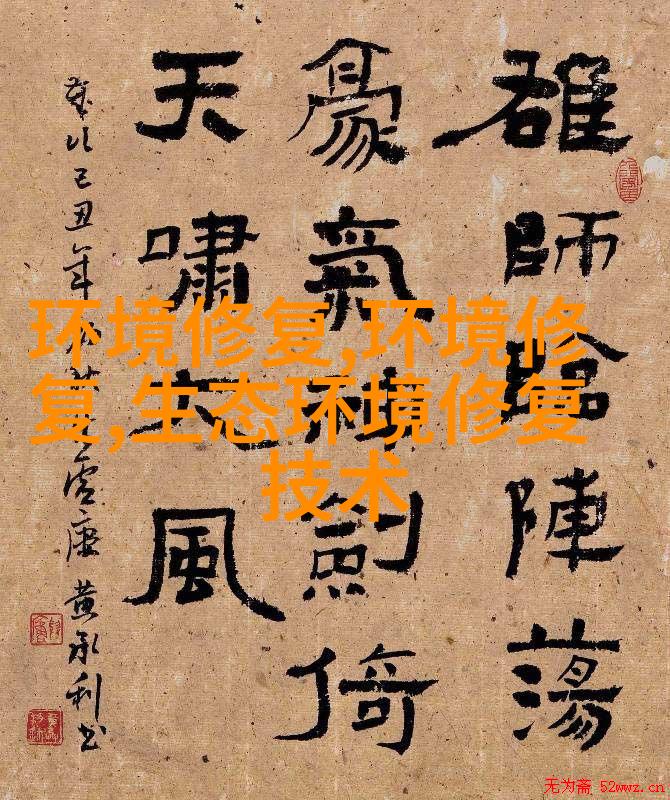 雄師臨陣蕩
豪氣神劍倚
天嘯大風
歲次己丑年 黄承利书
环境修复,环境修
复,生态环境修复
技术
无为斋 52wwz.cn